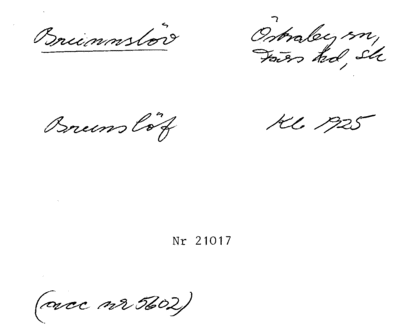 Brunnslöv Östraby sn,
Färs hd, Sk
Brunslöf Kb 1925
Nr 21017
(acc nr 5602)